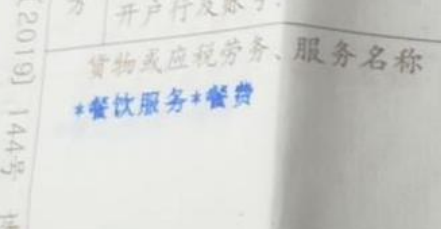 方 开户行及账号:
货物或应税劳务、服务名称
*餐饮服务*餐费
[2019] 144号